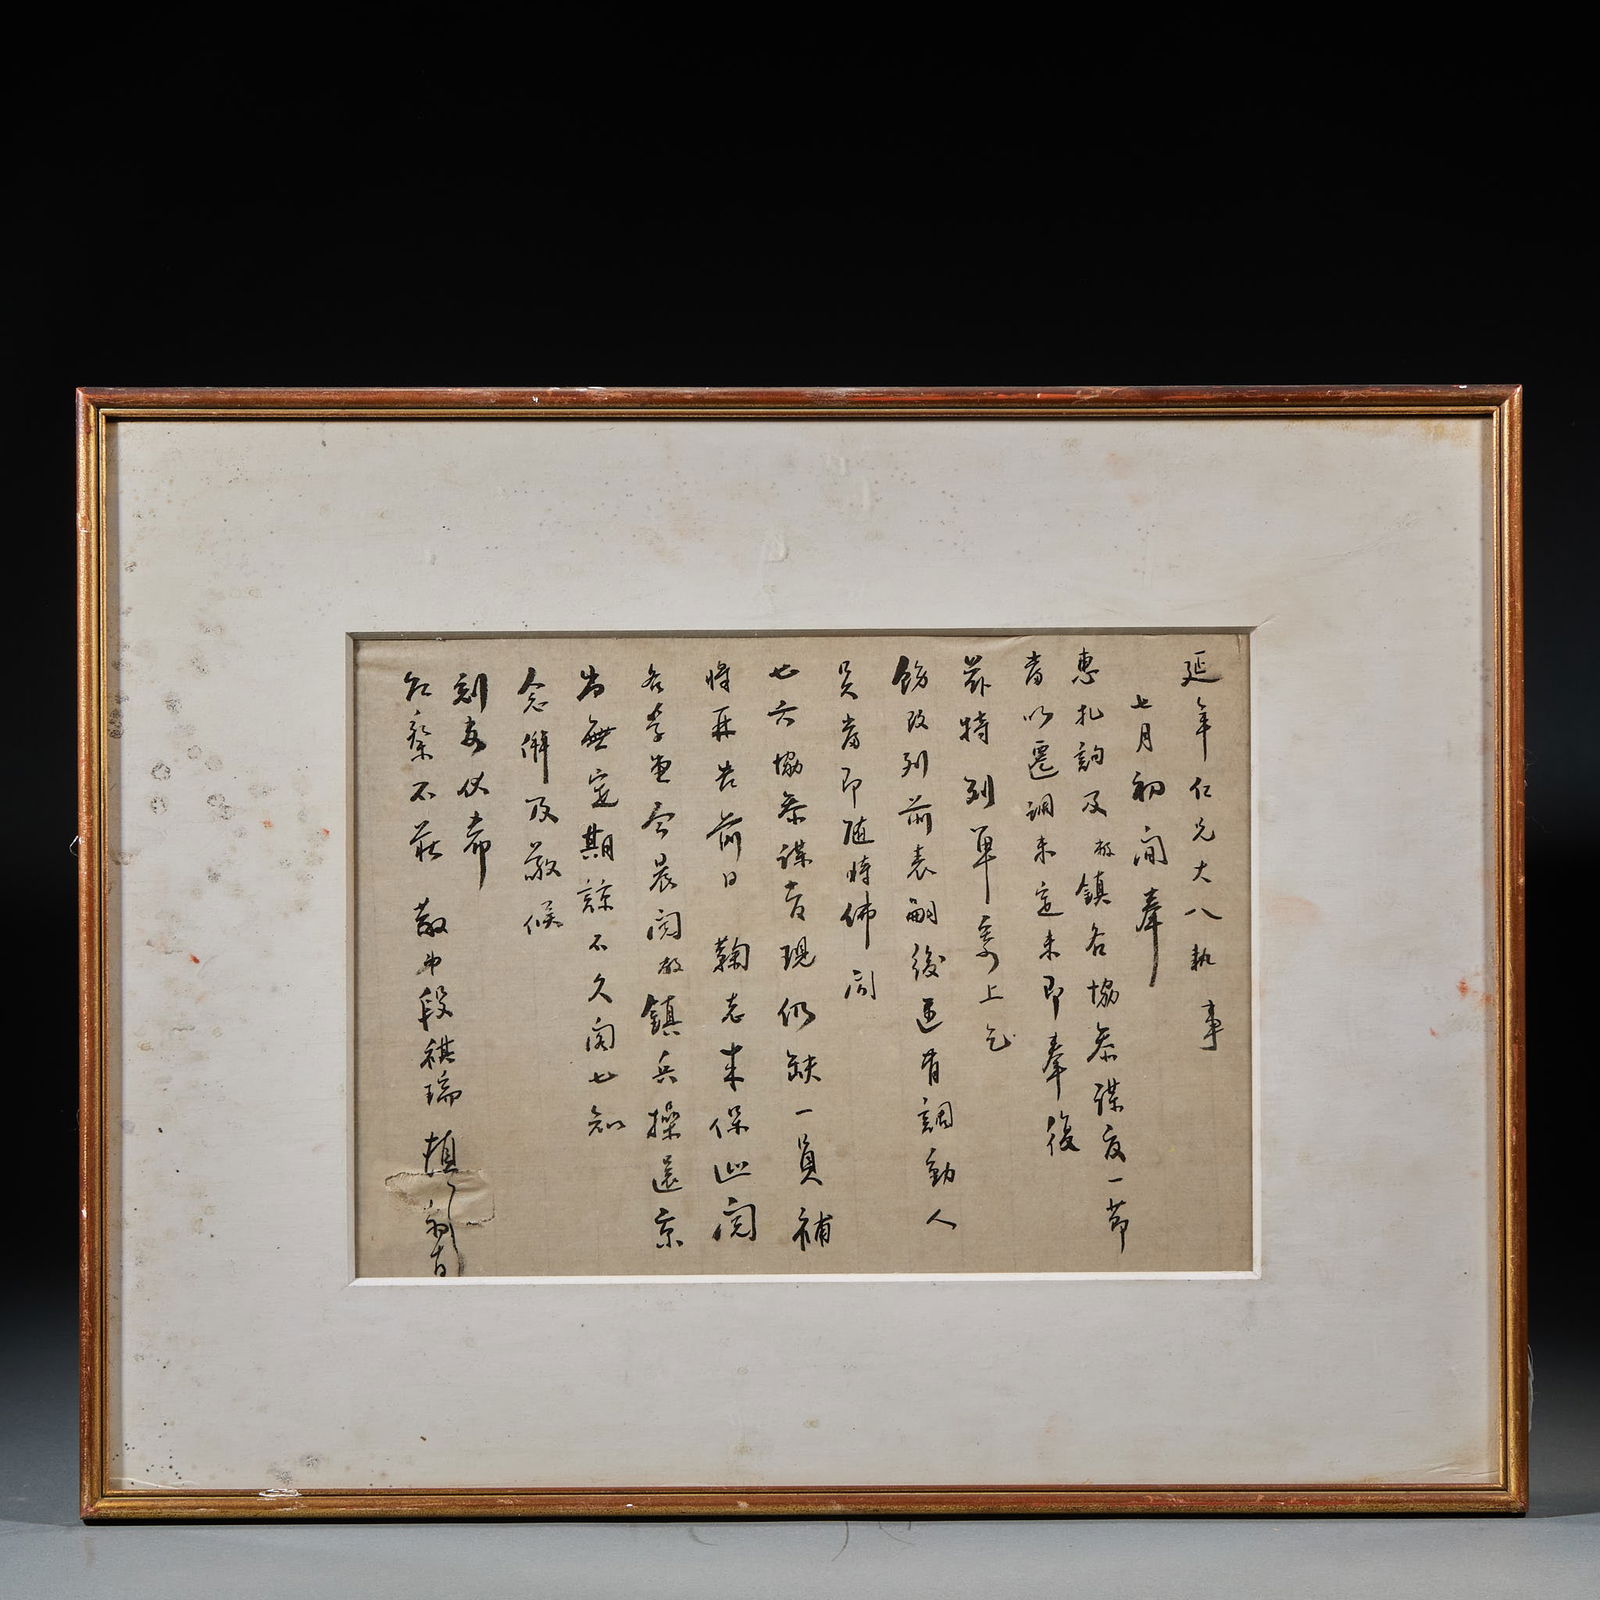 延年仁兄大人執事
七月初間奉
惠札詢及敝鎮各協參謀官一節
當以遷調未定未即奉復
茲特列單寄上乞
飭改列前表嗣後遇有調動人
員當即隨時佈聞
七六協參謀官現仍缺一員補
時再告前日鞠志來保延閱
各學堂今晨閱敝鎮兵操還京
尚無定期諒不久閣
念併及敬候
刻安伏希
不莊 教弟段祺瑞頓首